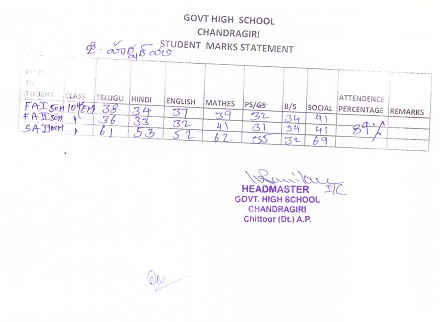 GOVT HIGH SCHOOL
CHANDRAGIRI
STUDENT MARKS STATEMENT
STUDENT CLASS TELUGU HINDI ENGLISH MATHES PS/GS B/S SOCIAL ATTENDENCE PERCENTAGE REMARKS
FAI 50M 10th(EM) 38 34 37 39 32 34 41
FAII 50M " 36 33 32 41 31 34 41 89%
SAI 100M " 61 53 52 62 35 32 69
I/C
HEADMASTER
GOVT. HIGH SCHOOL
CHANDRAGIRI
Chittoor (Dt.) A.P.